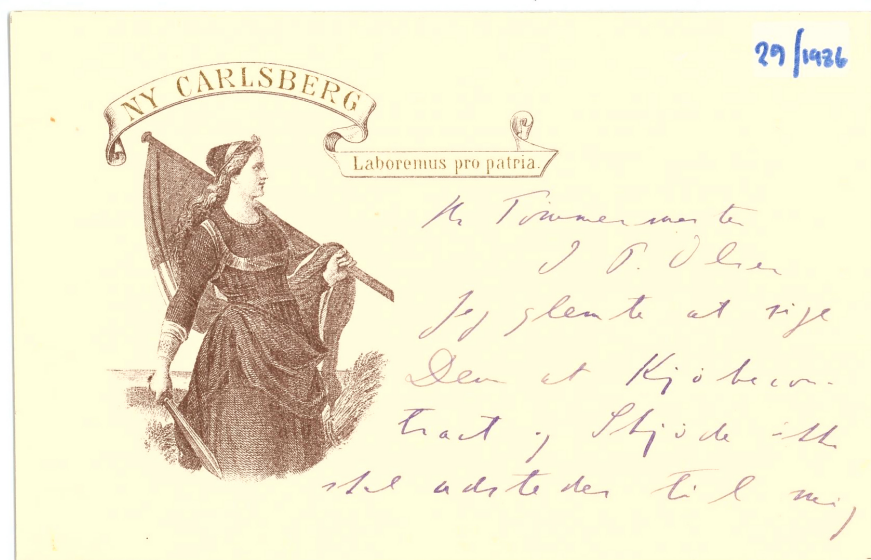 29/1986
NY CARLSBERG
Laboremus pro patria.
Hr Tømmermester
J P. Olsen
Jeg glemte at sige
Dem at Kjøbecon-
tract og Skjøde ikke
skal udstedes til mig